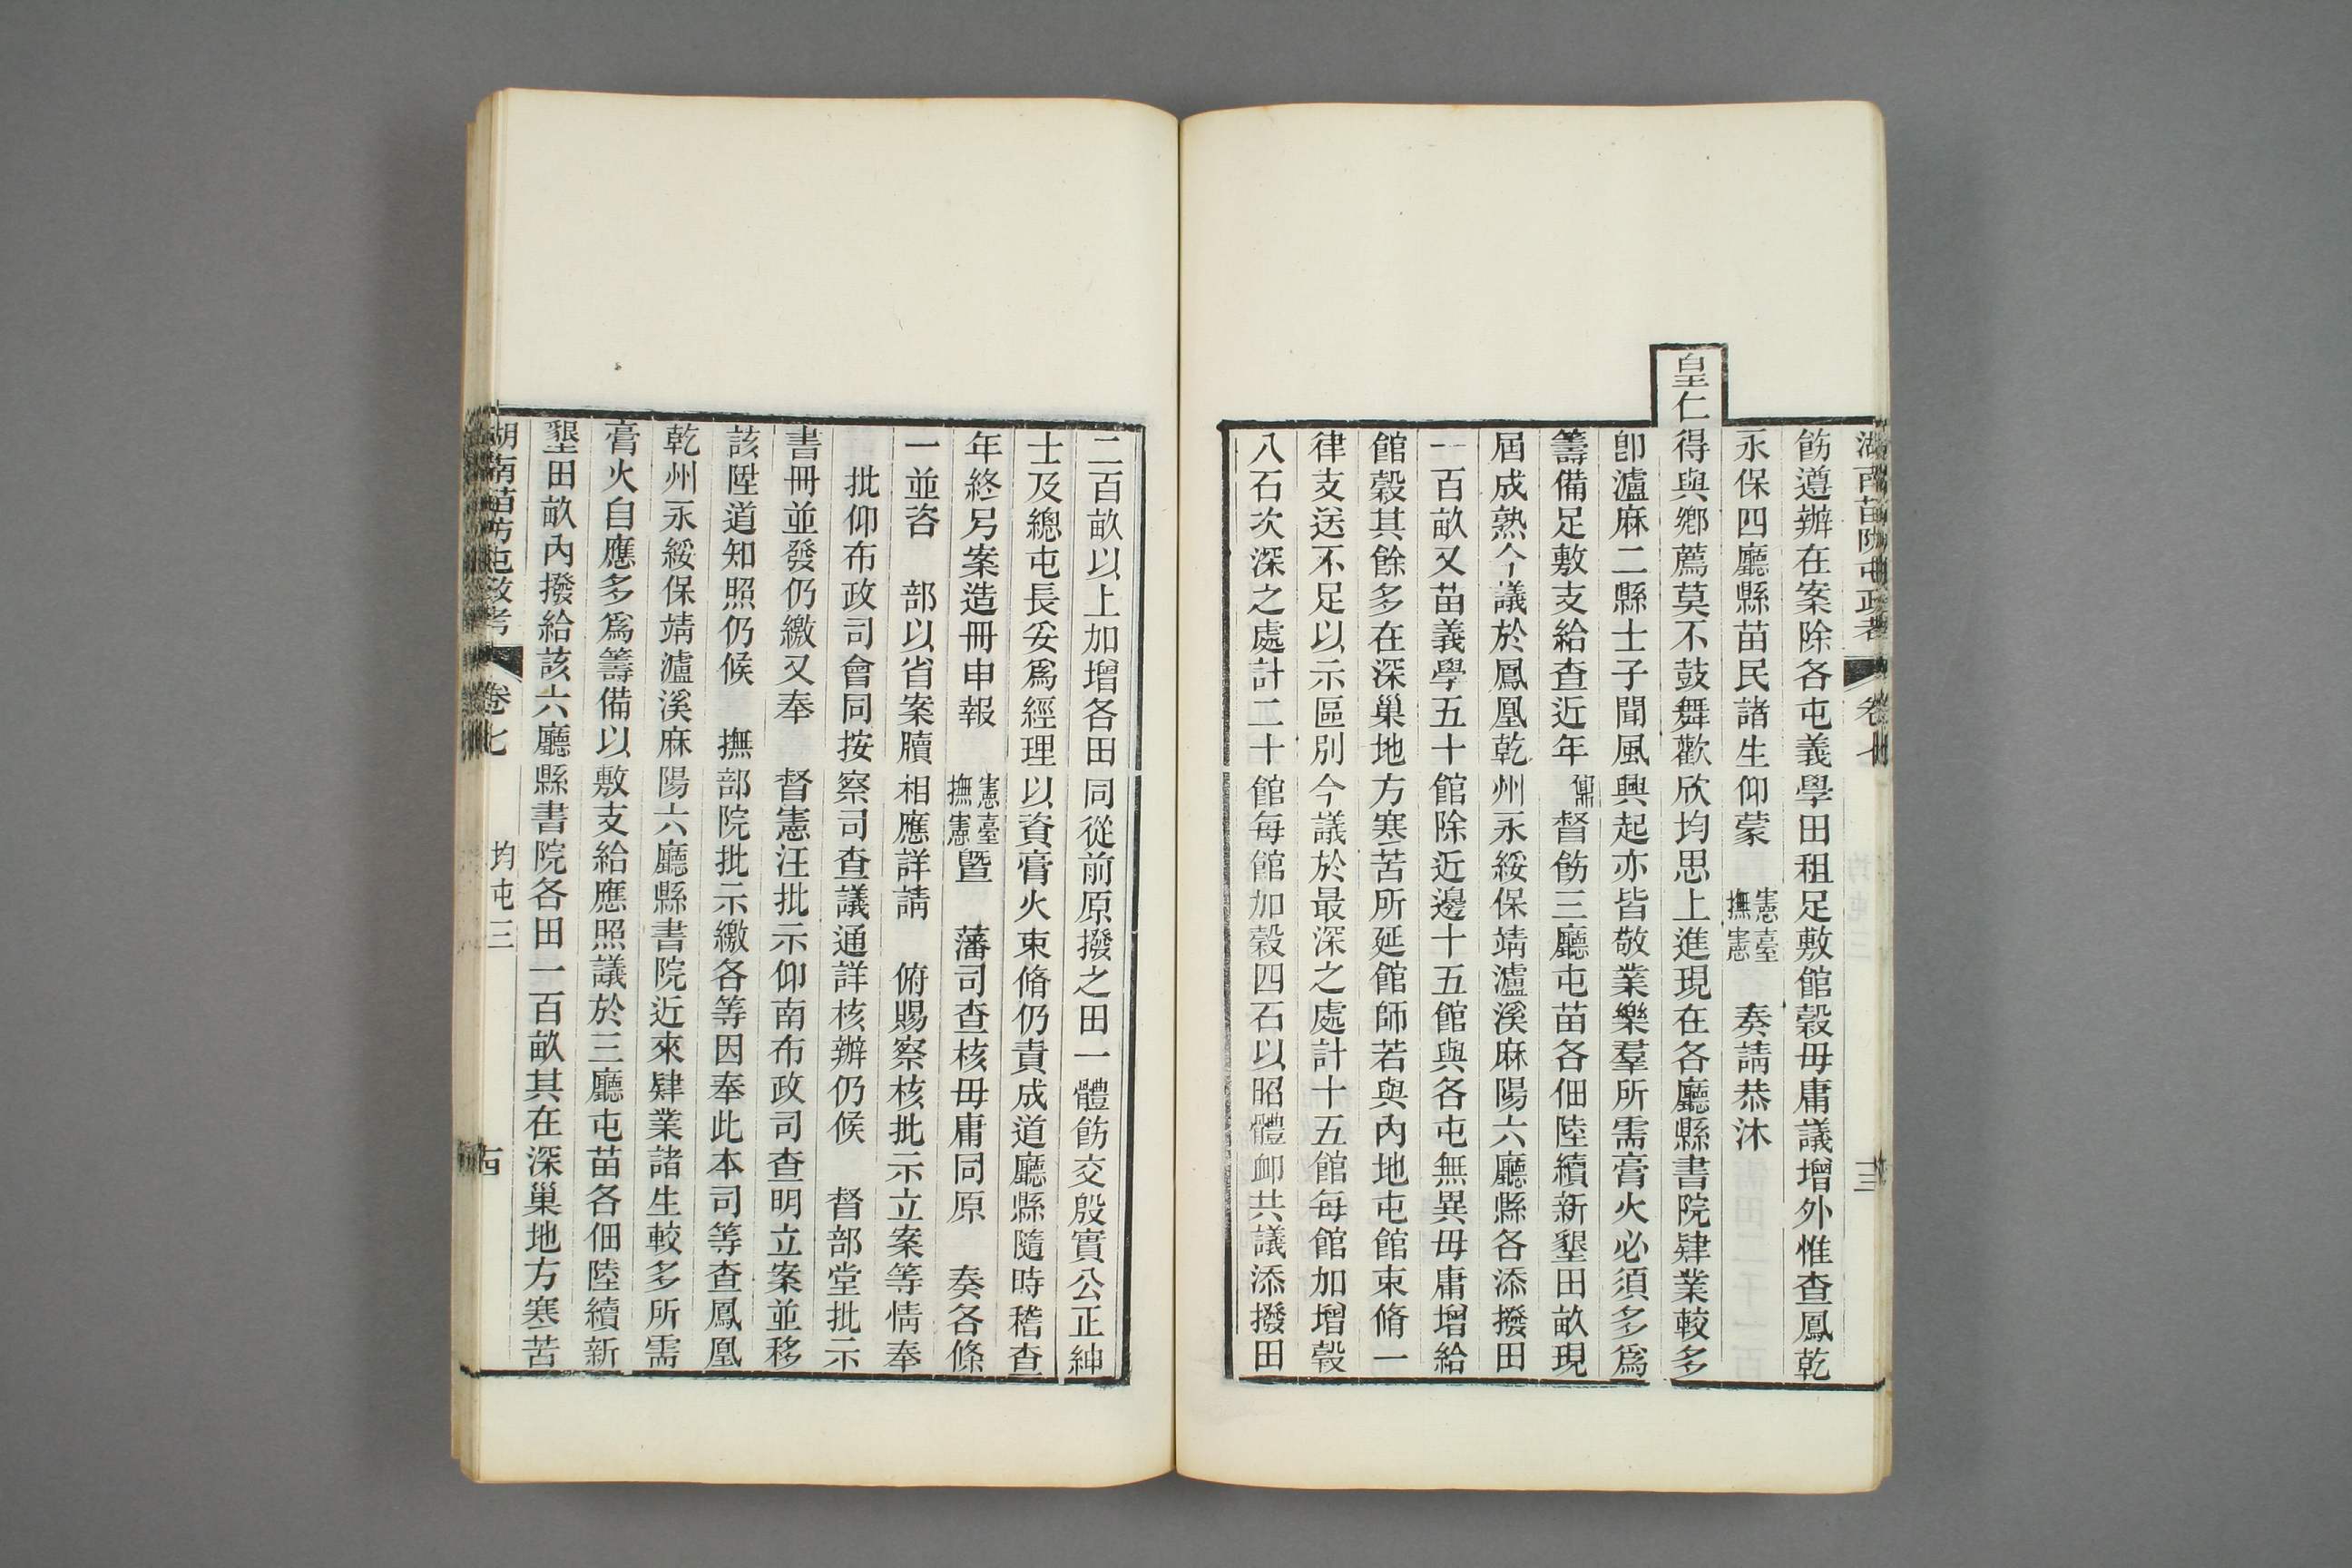 湖南苗防屯政考 卷七 十三
飭遵辦在案除各屯義學田租足敷館穀毋庸議增外惟查鳳乾
永保四廳縣苗民諸生仰蒙 憲臺撫憲 奏請恭沐
皇仁得與鄉薦莫不鼓舞歡欣均思上進現在各廳縣書院肄業較多
卽瀘麻二縣士子聞風興起亦皆敬業樂羣所需膏火必須多爲
籌備足敷支給查近年 督飭三廳屯苗各佃陸續新墾田畝現
屆成熟今議於鳳凰乾州永綏保靖瀘溪麻陽六廳縣各添撥田
一百畝又苗義學五十館除近邊十五館與各屯無異毋庸增給
館穀其餘多在深巢地方寒苦所延館師若與內地屯館束脩一
律支送不足以示區別今議於最深之處計十五館每館加增穀
八石次深之處計二十館每館加穀四石以昭體卹共議添撥田
二百畝以上加增各田同從前原撥之田一體飭交殷實公正紳
士及總屯長妥爲經理以資膏火束脩仍責成道廳縣隨時稽查
年終另案造冊申報 憲臺撫憲曁 藩司查核毋庸同原 奏各條
一並咨 部以省案牘相應詳請 俯賜察核批示立案等情奉
批仰布政司會同按察司查議通詳核辦仍候 督部堂批示
書冊並發仍繳又奉 督憲汪批示仰南布政司查明立案並移
該陞道知照仍候 撫部院批示繳各等因奉此本司等查鳳凰
乾州永綏保靖瀘溪麻陽六廳縣書院近來肄業諸生較多所需
膏火自應多爲籌備以敷支給應照議於三廳屯苗各佃陸續新
墾田畝內撥給該六廳縣書院各田一百畝其在深巢地方寒苦
湖南苗防屯政考 卷七 均屯三